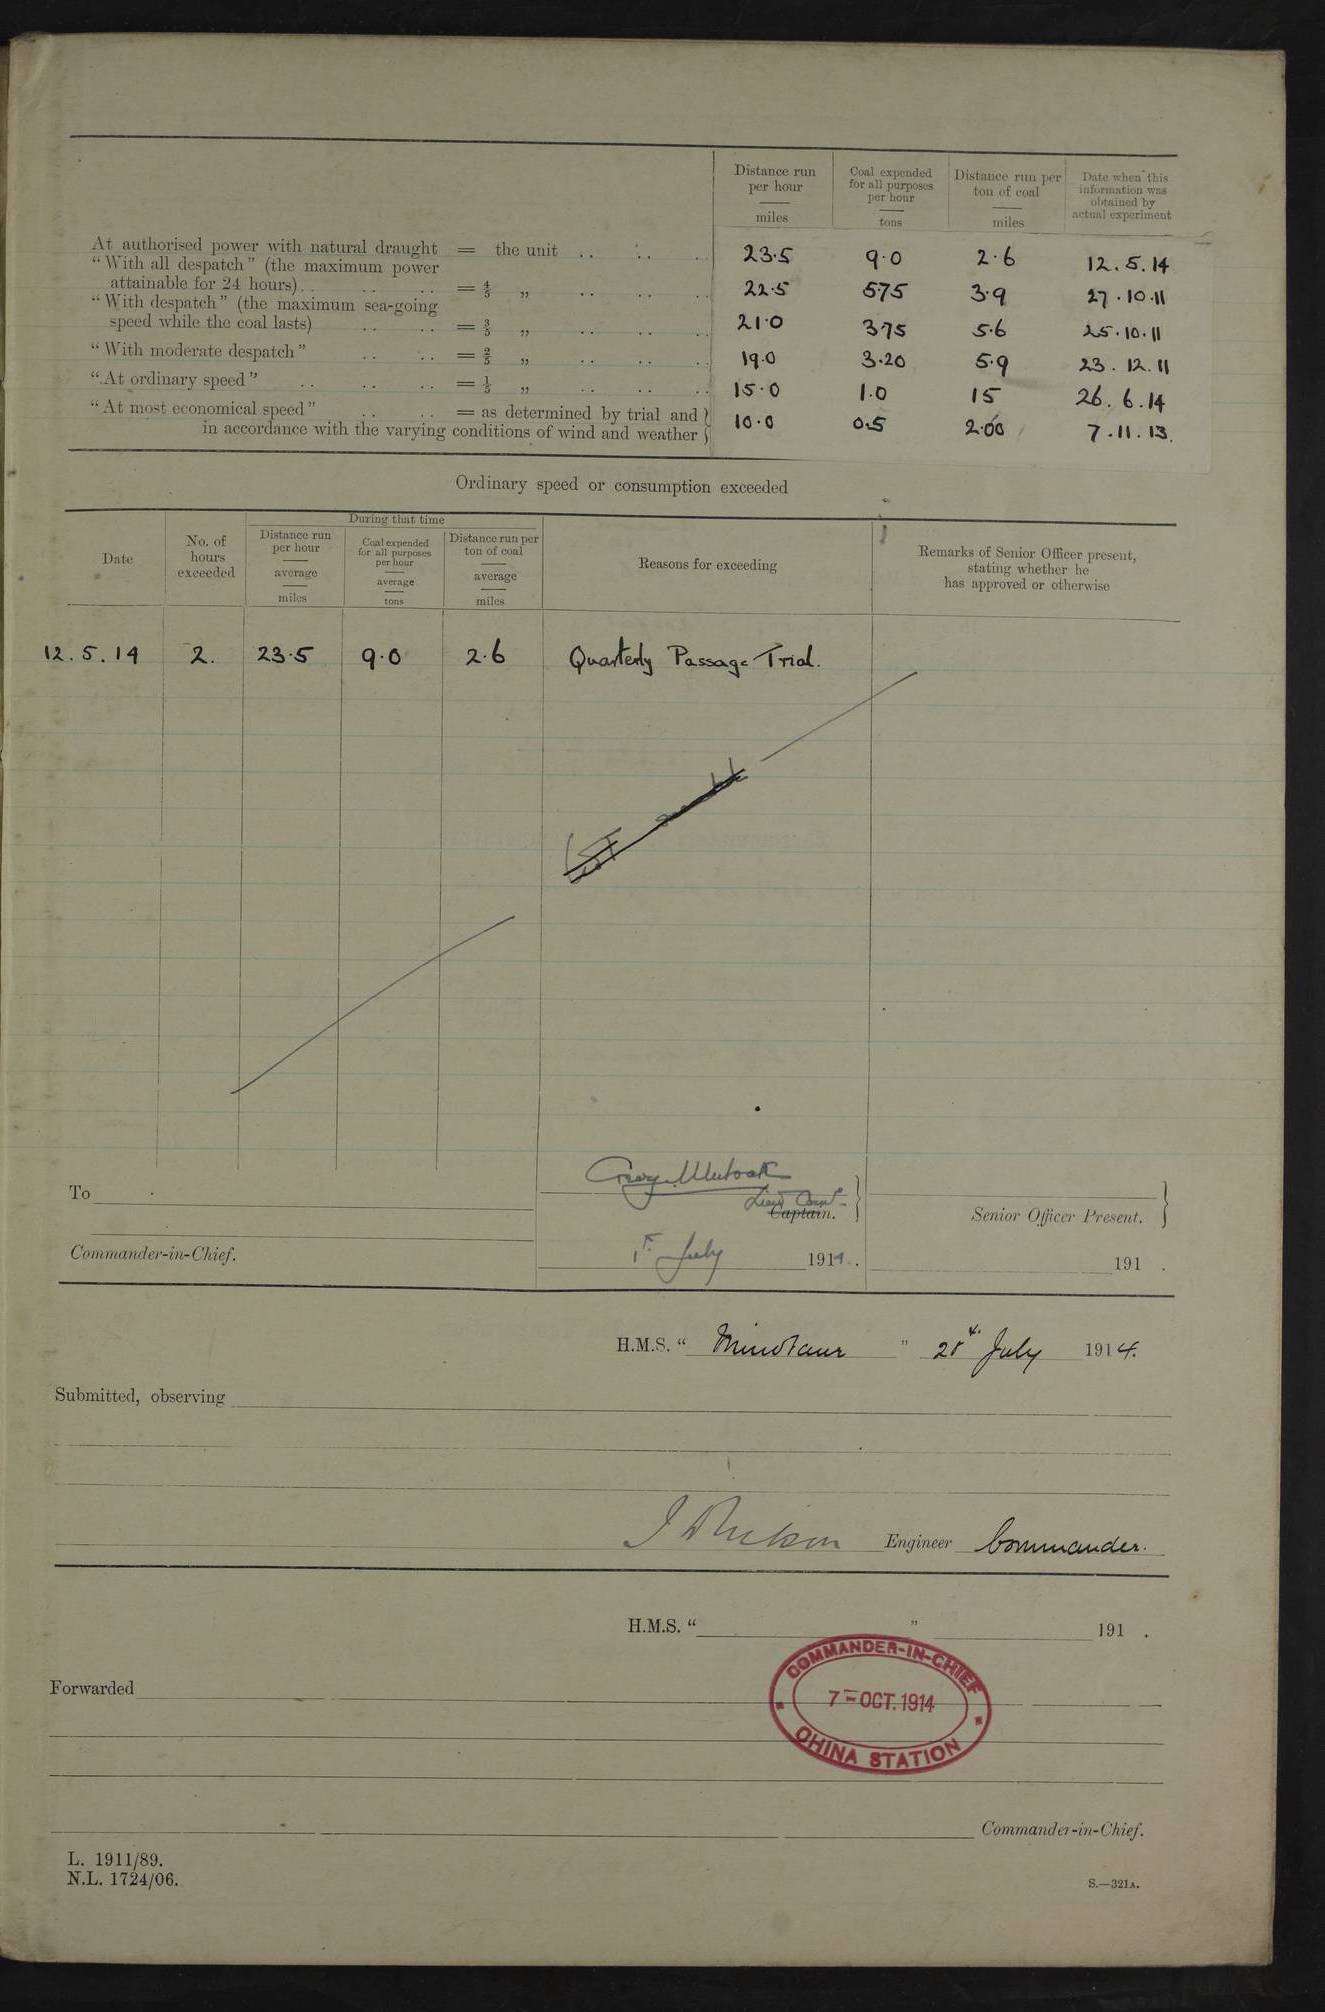 Distance run per hour miles
Coal expended for all purposes per hour tons
Distance run per ton of coal miles
Date when this information was obtained by actual experiment
At authorised power with natural draught = the unit .. .. .. 23·5 9·0 2·6 12.5.14
"With all despatch" (the maximum power
attainable for 24 hours) .. .. .. = 4/5 „ .. .. .. 22·5 5·75 3·9 27.10.11
"With despatch" (the maximum sea-going
speed while the coal lasts) .. .. = 3/5 „ .. .. .. 21·0 3·75 5·6 25.10.11
"With moderate despatch" .. .. = 2/5 „ .. .. .. 19·0 3·20 5·9 23.12.11
"At ordinary speed" .. .. .. = 1/5 „ .. .. .. 15·0 1·0 15 26.6.14
"At most economical speed" .. .. = as determined by trial and
in accordance with the varying conditions of wind and weather 10·0 0·5 2·00 7.11.13.
Ordinary speed or consumption exceeded
During that time
Date
No. of hours exceeded
Distance run per hour average miles
Coal expended for all purposes per hour average tons
Distance run per ton of coal average miles
Reasons for exceeding
Remarks of Senior Officer present, stating whether he has approved or otherwise
12.5.14 2. 23·5 9·0 2·6 Quarterly Passage Trial.
To
Lieut Comr
Captain.
Senior Officer Present.
Commander-in-Chief.
1st July 1914.
191 .
H.M.S. " Minotaur " July 1914.
Submitted, observing
Engineer Commander.
H.M.S. " " 191 .
COMMANDER-IN-CHIEF
Forwarded
7-OCT.1914
CHINA STATION
Commander-in-Chief.
L. 1911/89.
N.L. 1724/06.
S.—321A.